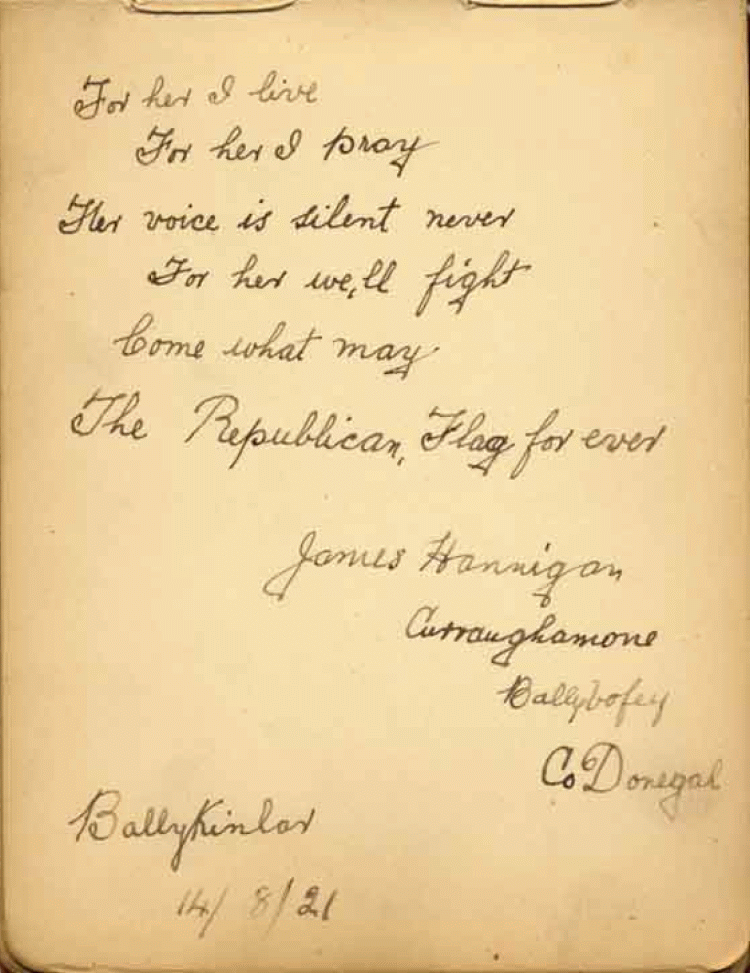 For her I live
For her I pray
Her voice is silent never
For her we,ll fight
Come what may
The Republican, Flag for ever
James Hannigan
Curraughamone
Ballybofey
Co Donegal
BallyKinlar
14/8/21